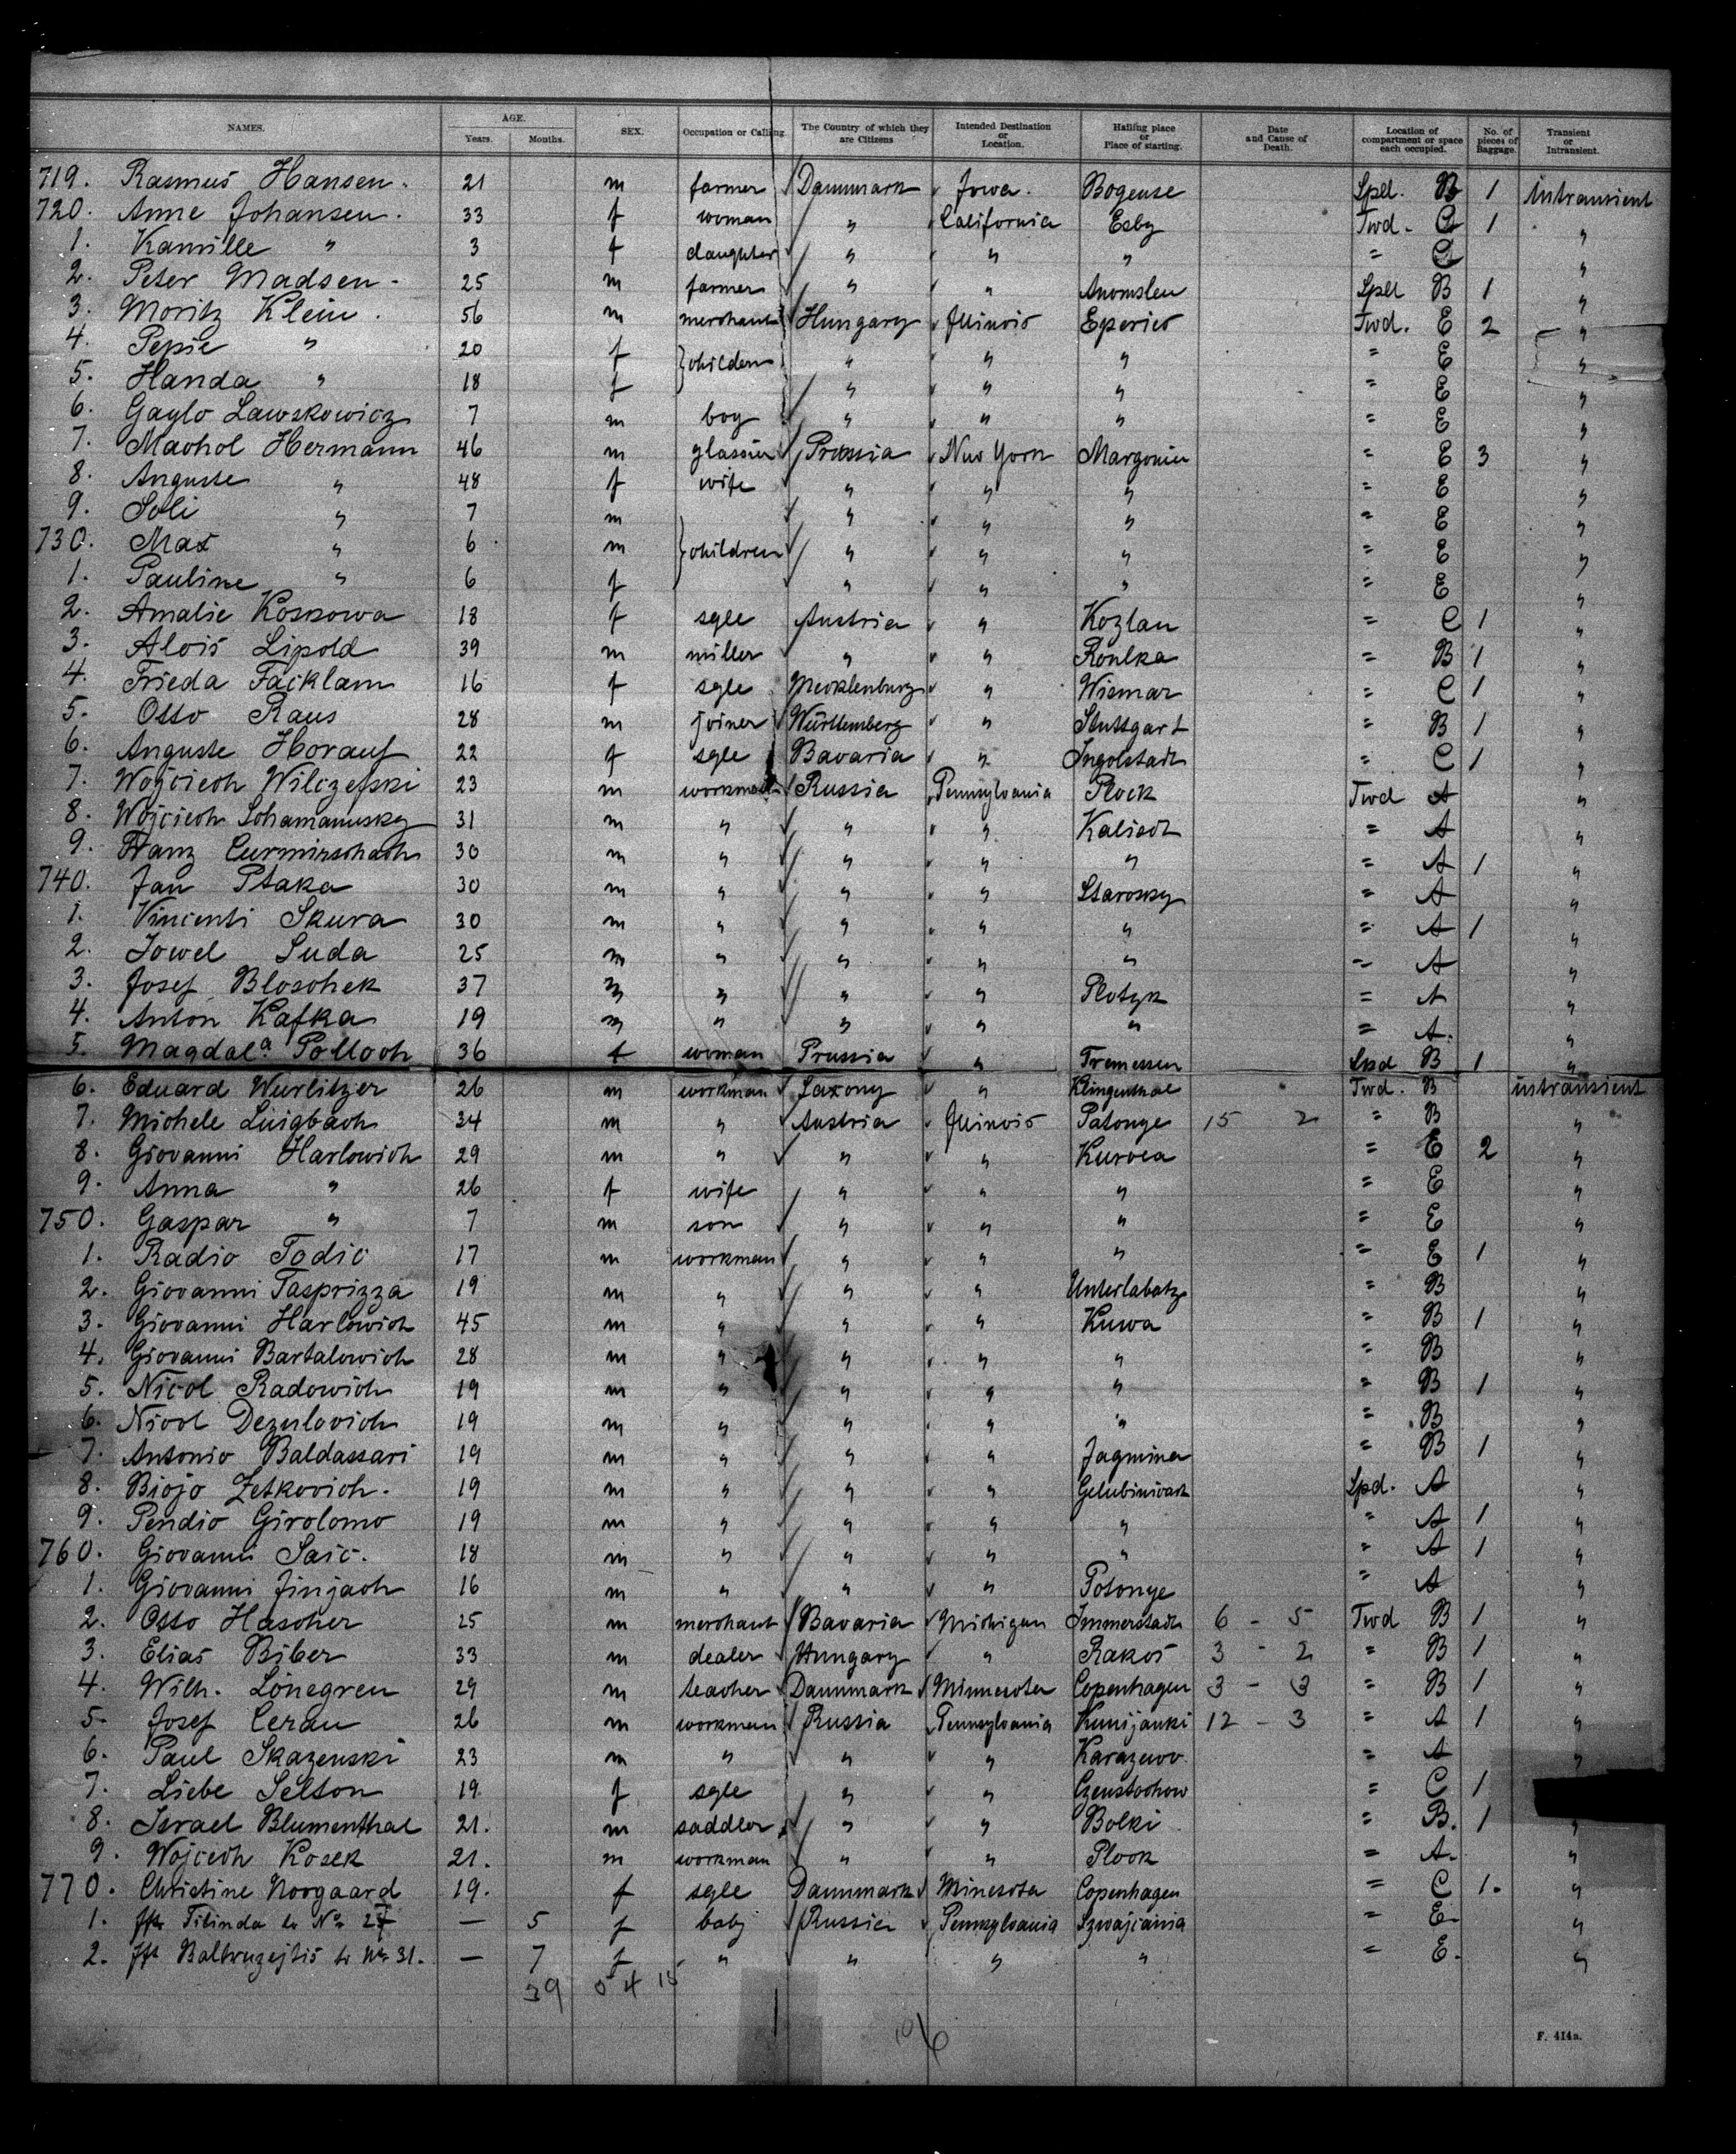 NAMES. AGE. Years. Months. SEX. Occupation or Calling. The Country of which they are Citizens Intended Destination or Location. Hailing place or Place of starting. Date and Cause of Death. Location of compartment or space each occupied. No. of pieces of Baggage. Transient or Intransient.
719. Rasmus Hansen. 21 m farmer Dannmark Iowa. Bogense Spd. B 1 intransient
720. Anne Johansen. 33 f woman " California Esby Twd. C 1 "
1. Kamille " 3 f daughter " " " = C "
2. Peter Madsen. 25 m farmer " " Anomslen Spd B 1 "
3. Moritz Klein. 56 m merchant Hungary Illinois Eperies Twd. E 2 "
4. Pepie " 20 f } children " " " = E "
5. Handa " 18 f " " " = E "
6. Gaylo Lawskowicz 7 m boy " " " = E "
7. Machol Hermann 46 m glassier Prussia New York Margonin = E 3 "
8. Auguste " 48 f wife " " " = E "
9. Soli " 7 m " " " = E "
730. Max " 6 m } children " " " = E "
1. Pauline " 6 f " " " = E "
2. Amalie Koskowa 18 f sgle Austria " Kozlau = C 1 "
3. Alois Lipold 39 m miller " " Roulka = B 1 "
4. Frieda Facklam 16 f sgle Mecklenburg " Wismar = C 1 "
5. Otto Raus 28 m joiner Württemberg " Stuttgart = B 1 "
6. Auguste Horauf 22 f sgle Bavaria " Ingolstadt = C 1 "
7. Wojciech Wilczefski 23 m workman Russia Pennsylvania Plock Twd A "
8. Wojciech Schamanusky 31 m " " " Kalisch = A "
9. Franz Curmirschach 30 m " " " " = A 1 "
740. Jan Ptaka 30 m " " " Starossy = A "
1. Vincenti Skura 30 m " " " " = A 1 "
2. Jowel Suda 25 m " " " " = A "
3. Josef Bloschek 37 m " " " Plotzk = A "
4. Anton Kafka 19 m " " " " = A. "
5. Magdal.a Polloch 36 f woman Prussia " Tremessen Spd B 1 "
6. Eduard Wurlitzer 26 m workman Saxony " Klingenthal Twd. B intransient
7. Michele Luigbach 34 m " Austria Illinois Patonye 15 2 = B "
8. Giovanni Harlowich 29 m " " " Kurvea = E 2 "
9. Anna " 26 f wife " " " = E "
750. Gaspar " 7 m son " " " = E "
1. Radio Todic 17 m workman " " " = E 1 "
2. Giovanni Tasprizza 19 m " " " Unterlabatz = B "
3. Giovanni Harlowich 45 m " " " Kuwa = B 1 "
4. Giovanni Bartalowich 28 m " " " " = B "
5. Nicol Radowich 19 m " " " " = B 1 "
6. Nicol Dezulovich 19 m " " " " = B "
7. Antonio Baldassari 19 m " " " Jagmina = B 1 "
8. Biojo Zetkovich. 19 m " " " Gelubinivach Spd. A "
9. Pendio Girolomo 19 m " " " " " A 1 "
760. Giovanni Saic. 18 m " " " " " A 1 "
1. Giovanni Jinjach 16 m " " " Potonye " A "
2. Otto Hascher 25 m merchant Bavaria Michigan Immerstadt 6 - 5 Twd B 1 "
3. Elias Biber 33 m dealer Hungary " Rakos 3 - 2 = B 1 "
4. Wilh. Lönegren 29 m teacher Dannmark Minnesota Copenhagen 3 - 3 = B 1 "
5. Josef Ceran 26 m workman Russia Pennsylvania Kunijanki 12 - 3 = A 1 "
6. Paul Skazenski 23 m " " " Karazuov. = A "
7. Liebe Selton 19 f sgle " " Czenstochow = C 1
8. Israel Blumenthal 21. m saddler " " Bolki = B. 1 "
9. Wojciech Kosek 21. m workman " " Plock = A. "
770. Christine Noogaard 19. f sgle Dannmark Minesota Copenhagen = C 1. "
1. Tilinda to No 27 — 5 f baby Russia Pennsylvania Szwajciania = E. "
2. Baltruzejtis to No 31. — 7 f " " " " = E. "
39 5 4 15
106
F. 414a.